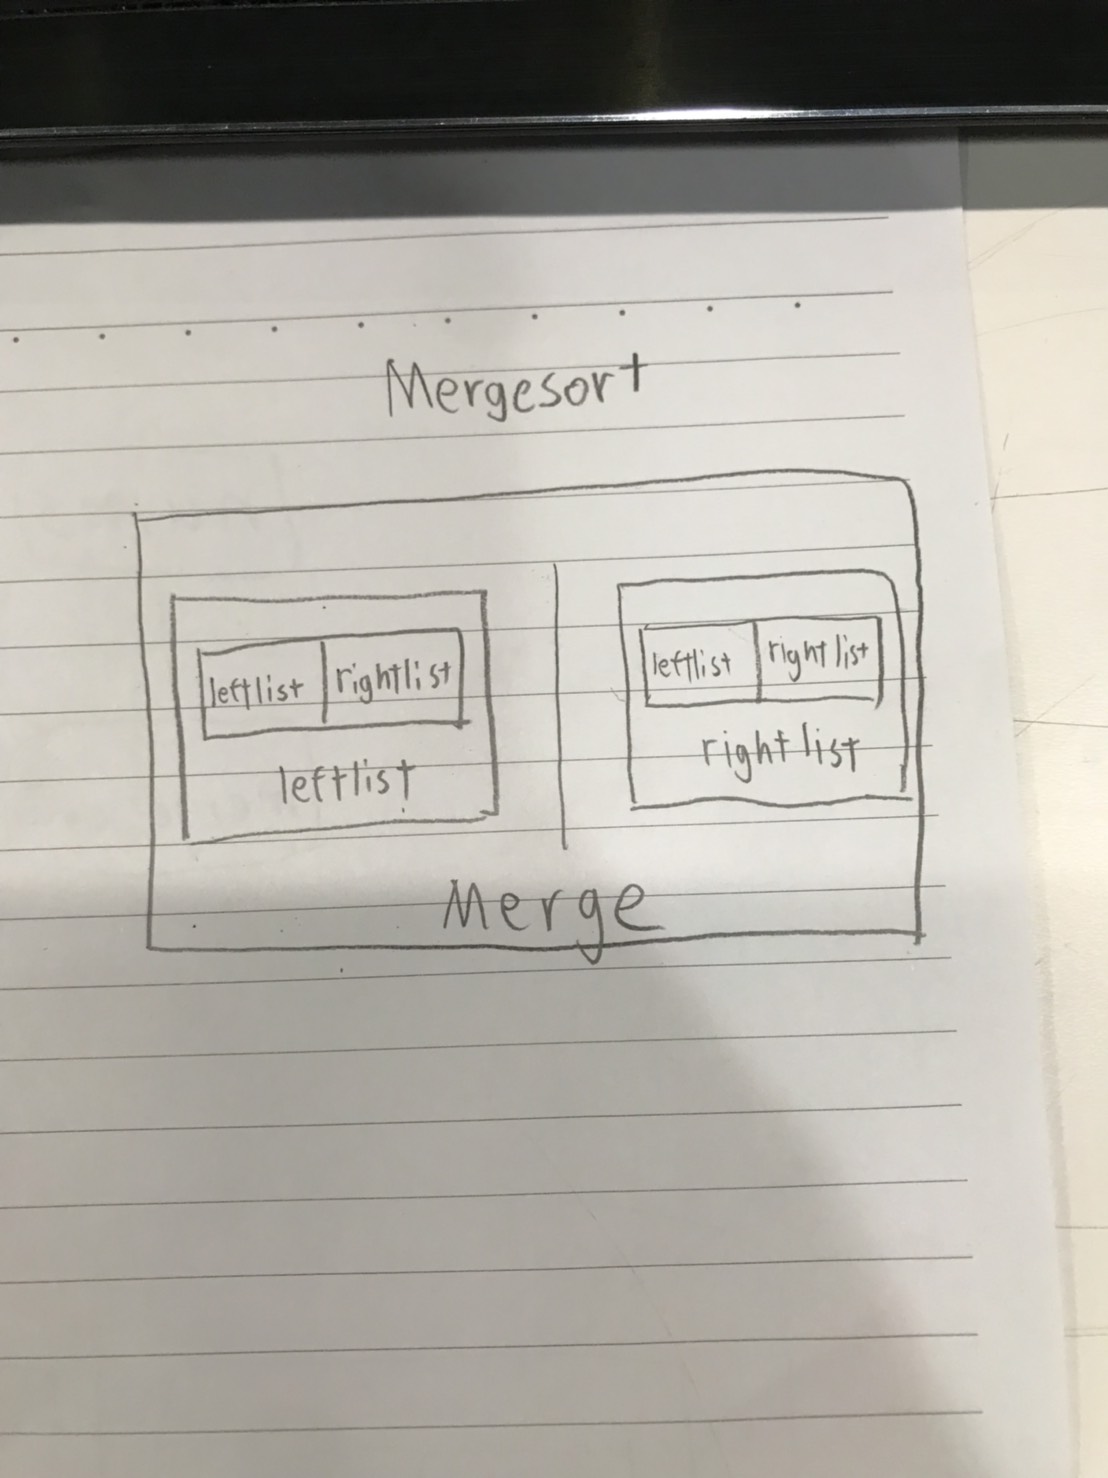 Mergesort
leftlist rightlist
leftlist
leftlist right list
right list
Merge